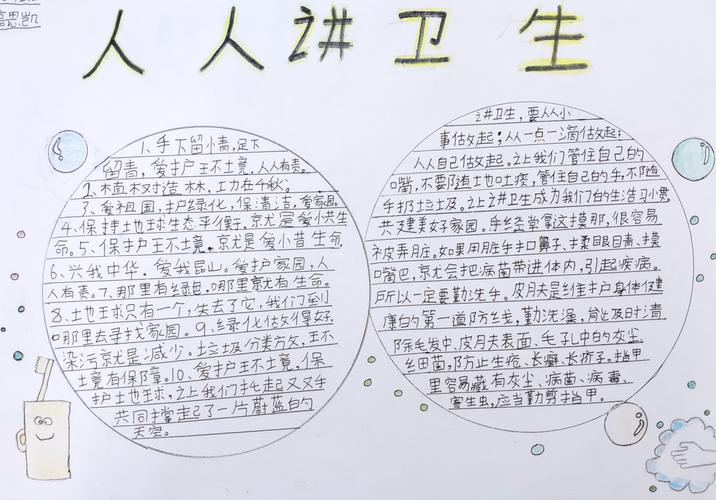 高思凯
人人讲卫生
1、手下留情,足下
留青,爱护环境,人人有责。
2、植树造林,功在千秋。
3、爱祖国,护绿化,保清洁,爱家园。
4、保持地球生态平衡,就是爱惜生
命。5、保护环境,就是爱惜生命
6、兴我中华,爱我昆山。爱护家园,人
人有责。7、哪里有绿甜,哪里就有生命。
8、地球只有一个,失去了它,我们到
哪里去寻找家园。9、绿化做得好,
染污就是减少。垃圾分类方,环
境有保障。10、爱护环境,保
护地球,让我们托起双手
共同撑起了一片蔚蓝的
天空。
讲卫生,要从小
事做起;从一点一滴做起;
从人自己做起。让我们管住自己的
嘴,不要随地吐痰,管住自己的手,不随
手扔垃圾。让讲卫生成为我们的生活习惯
共建美好家园。手经常拿这摸那,很容易
被弄脏。如果用脏手抠鼻子、揉眼目青、摸
嘴巴,就会把病菌带进体内,引起疾病。
所以一定要勤洗手。皮肤是维护身体健
康的第一道防线,勤洗澡,能及时清
除毛发中、皮肤表面、毛孔中的灰尘
细菌,防止生疮、长癣、长疥子。指甲
里容易藏有灰尘、病菌、病毒、
寄生虫,应当勤剪指甲。